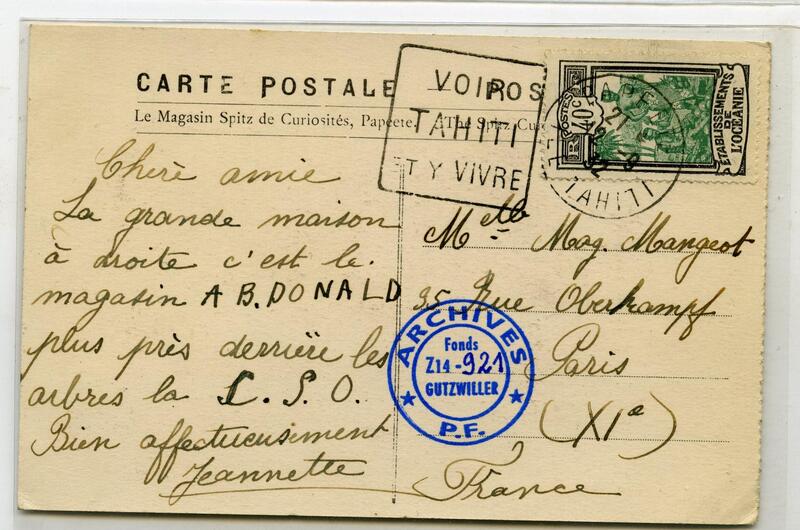 CARTE POSTALE
Le Magasin Spitz de Curiosités, Papeete. The Spitz Cu
VOIR OS
TAHITI
ET Y VIVRE
POSTES
40 c
RF
ÉTABLISSEMENTS
DE
L'OCÉANIE
PAPE
21
9
32
TAHITI
Chère amie
La grande maison
à droite c'est le
magasin A B. DONALD
plus près derrière les
arbres la L. S. O.
Bien affectueusement
Jeannette
Melle Mag. Mangeot
35 Rue Oberkampf
Paris
(XIe)
France
ARCHIVES
Fonds
Z14-921
GUTZWILLER
P.F.